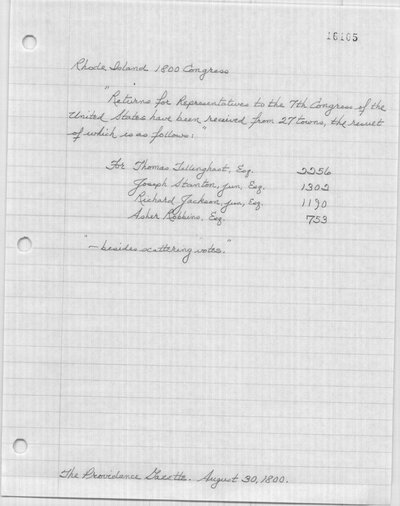 16105
Rhode Island 1800 Congress
"Returns for Representatives to the 7th Congress of the
United States have been received from 27 towns, the result
of which is as follows:"
For Thomas Tillinghast, Esq. 2256
Joseph Stanton, jun, Esq. 1302
Richard Jackson, jun, Esq. 1190
Asher Robbins, Esq. 753
"— besides scattering votes."
The Providence Gazette. August 30, 1800.